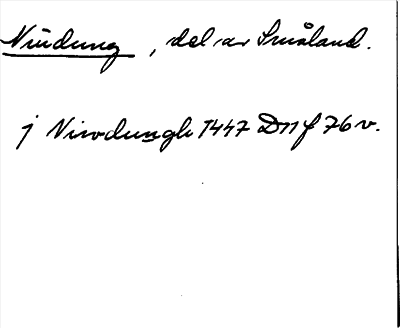 Niudung, del av Småland.
j Nivdungh 1447 Dn f 76 v.